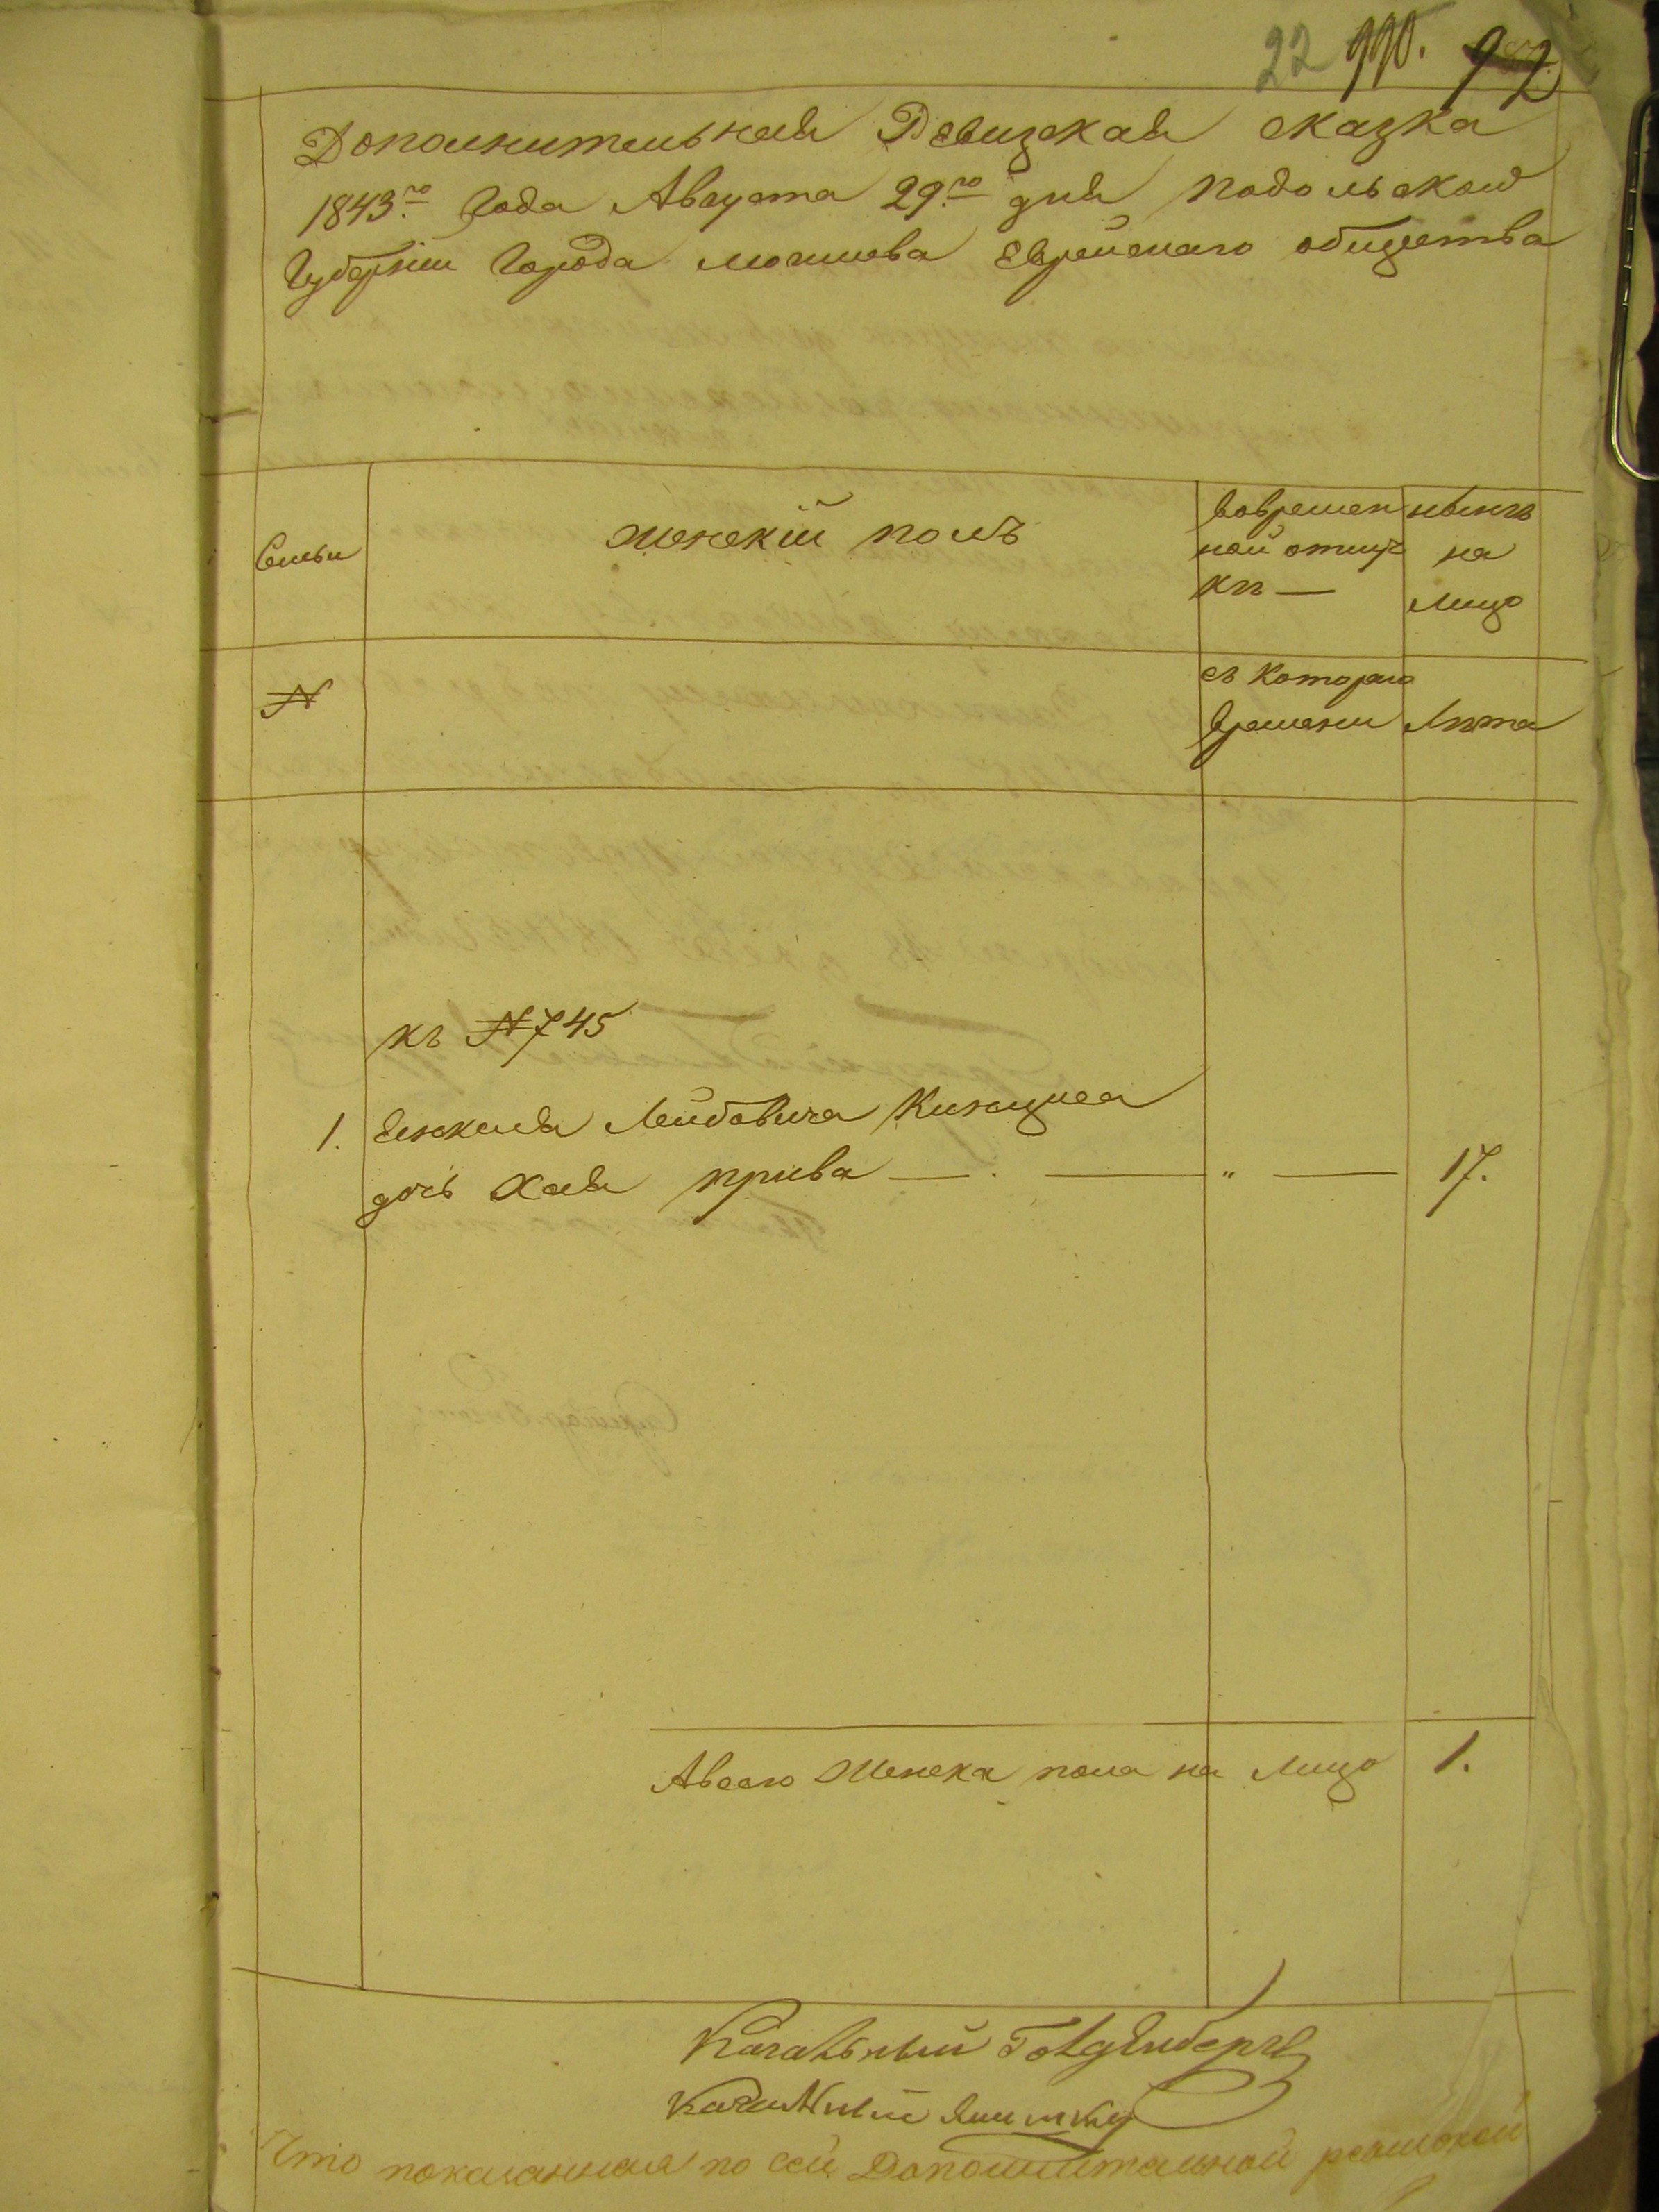 22 990. 92
Дополнительная Ревизская сказка
1843го Года Августа 29го дня подольской
Губернии Города могилева Еврейскаго общества
Семьи
женский полъ
вовремен
ной отлуч
кѣ —
нынѣ
на
лицо
№
съ котораго
времени
Лѣта
къ №745
1. Лейбовича
дочь Хая прива — . — " — 17.
Авсего Женска пола на лицо 1.
Кагальный Голденбергъ
Кагальный
Что показанная по сей Дополнительной ревизской